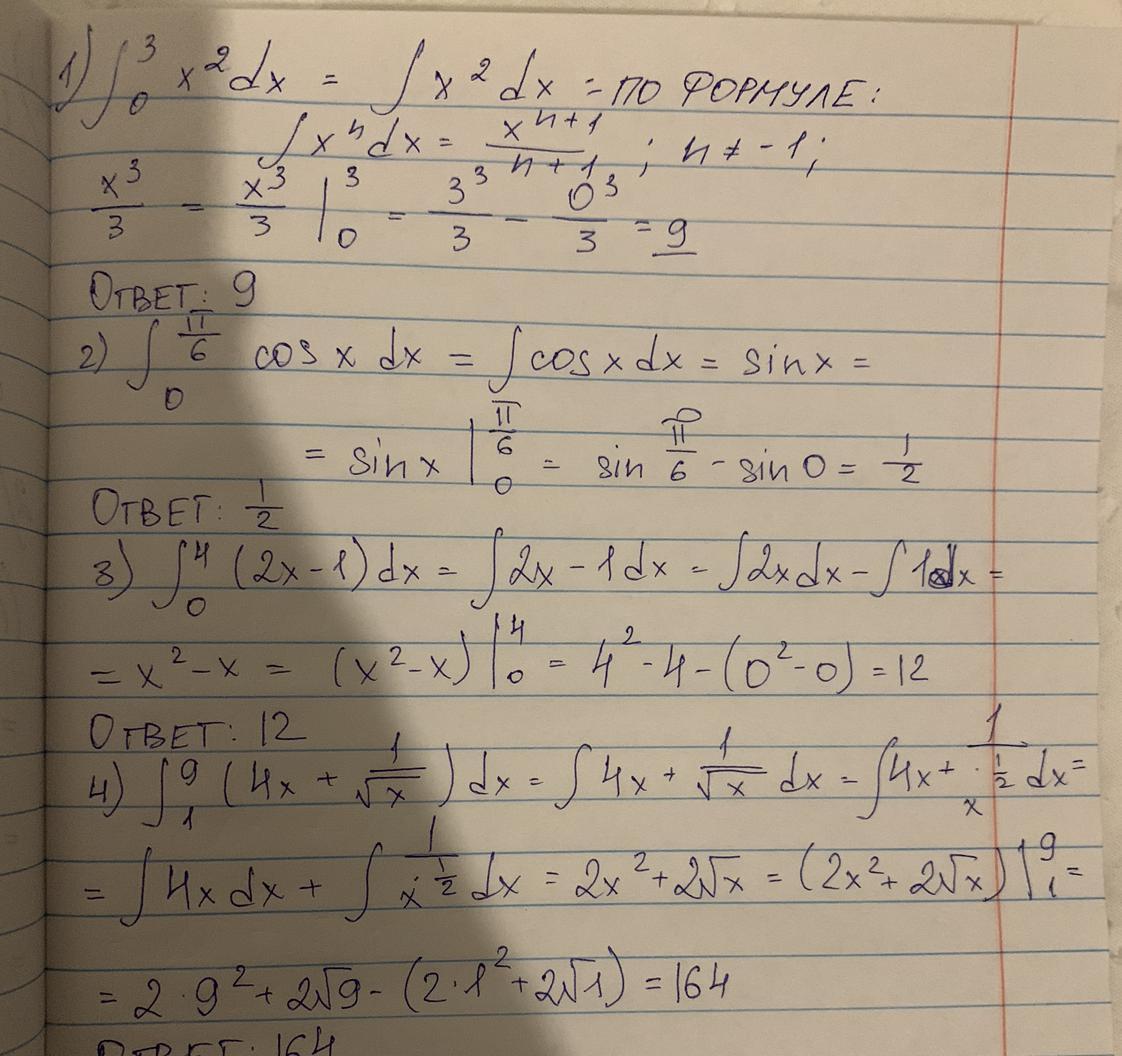 1) ∫₀³ x² dx = ∫ x² dx = ПО ФОРМУЛЕ:
∫ xⁿ dx = xⁿ⁺¹/(n+1) ; n ≠ -1;
x³/3 = x³/3 |₀³ = 3³/3 - 0³/3 = 9
ОТВЕТ: 9
2) ∫₀^(π/6) cos x dx = ∫ cos x dx = sin x =
= sin x |₀^(π/6) = sin π/6 - sin 0 = 1/2
ОТВЕТ: 1/2
3) ∫₀⁴ (2x-1) dx = ∫ 2x - 1 dx = ∫ 2x dx - ∫ 1 dx =
= x² - x = (x² - x) |₀⁴ = 4² - 4 - (0² - 0) = 12
ОТВЕТ: 12
4) ∫₁⁹ (4x + 1/√x) dx = ∫ 4x + 1/√x dx = ∫ 4x + 1/x^(1/2) dx =
= ∫ 4x dx + ∫ 1/x^(1/2) dx = 2x² + 2√x = (2x² + 2√x) |₁⁹ =
= 2 · 9² + 2√9 - (2 · 1² + 2√1) = 164
ОТВЕТ: 164